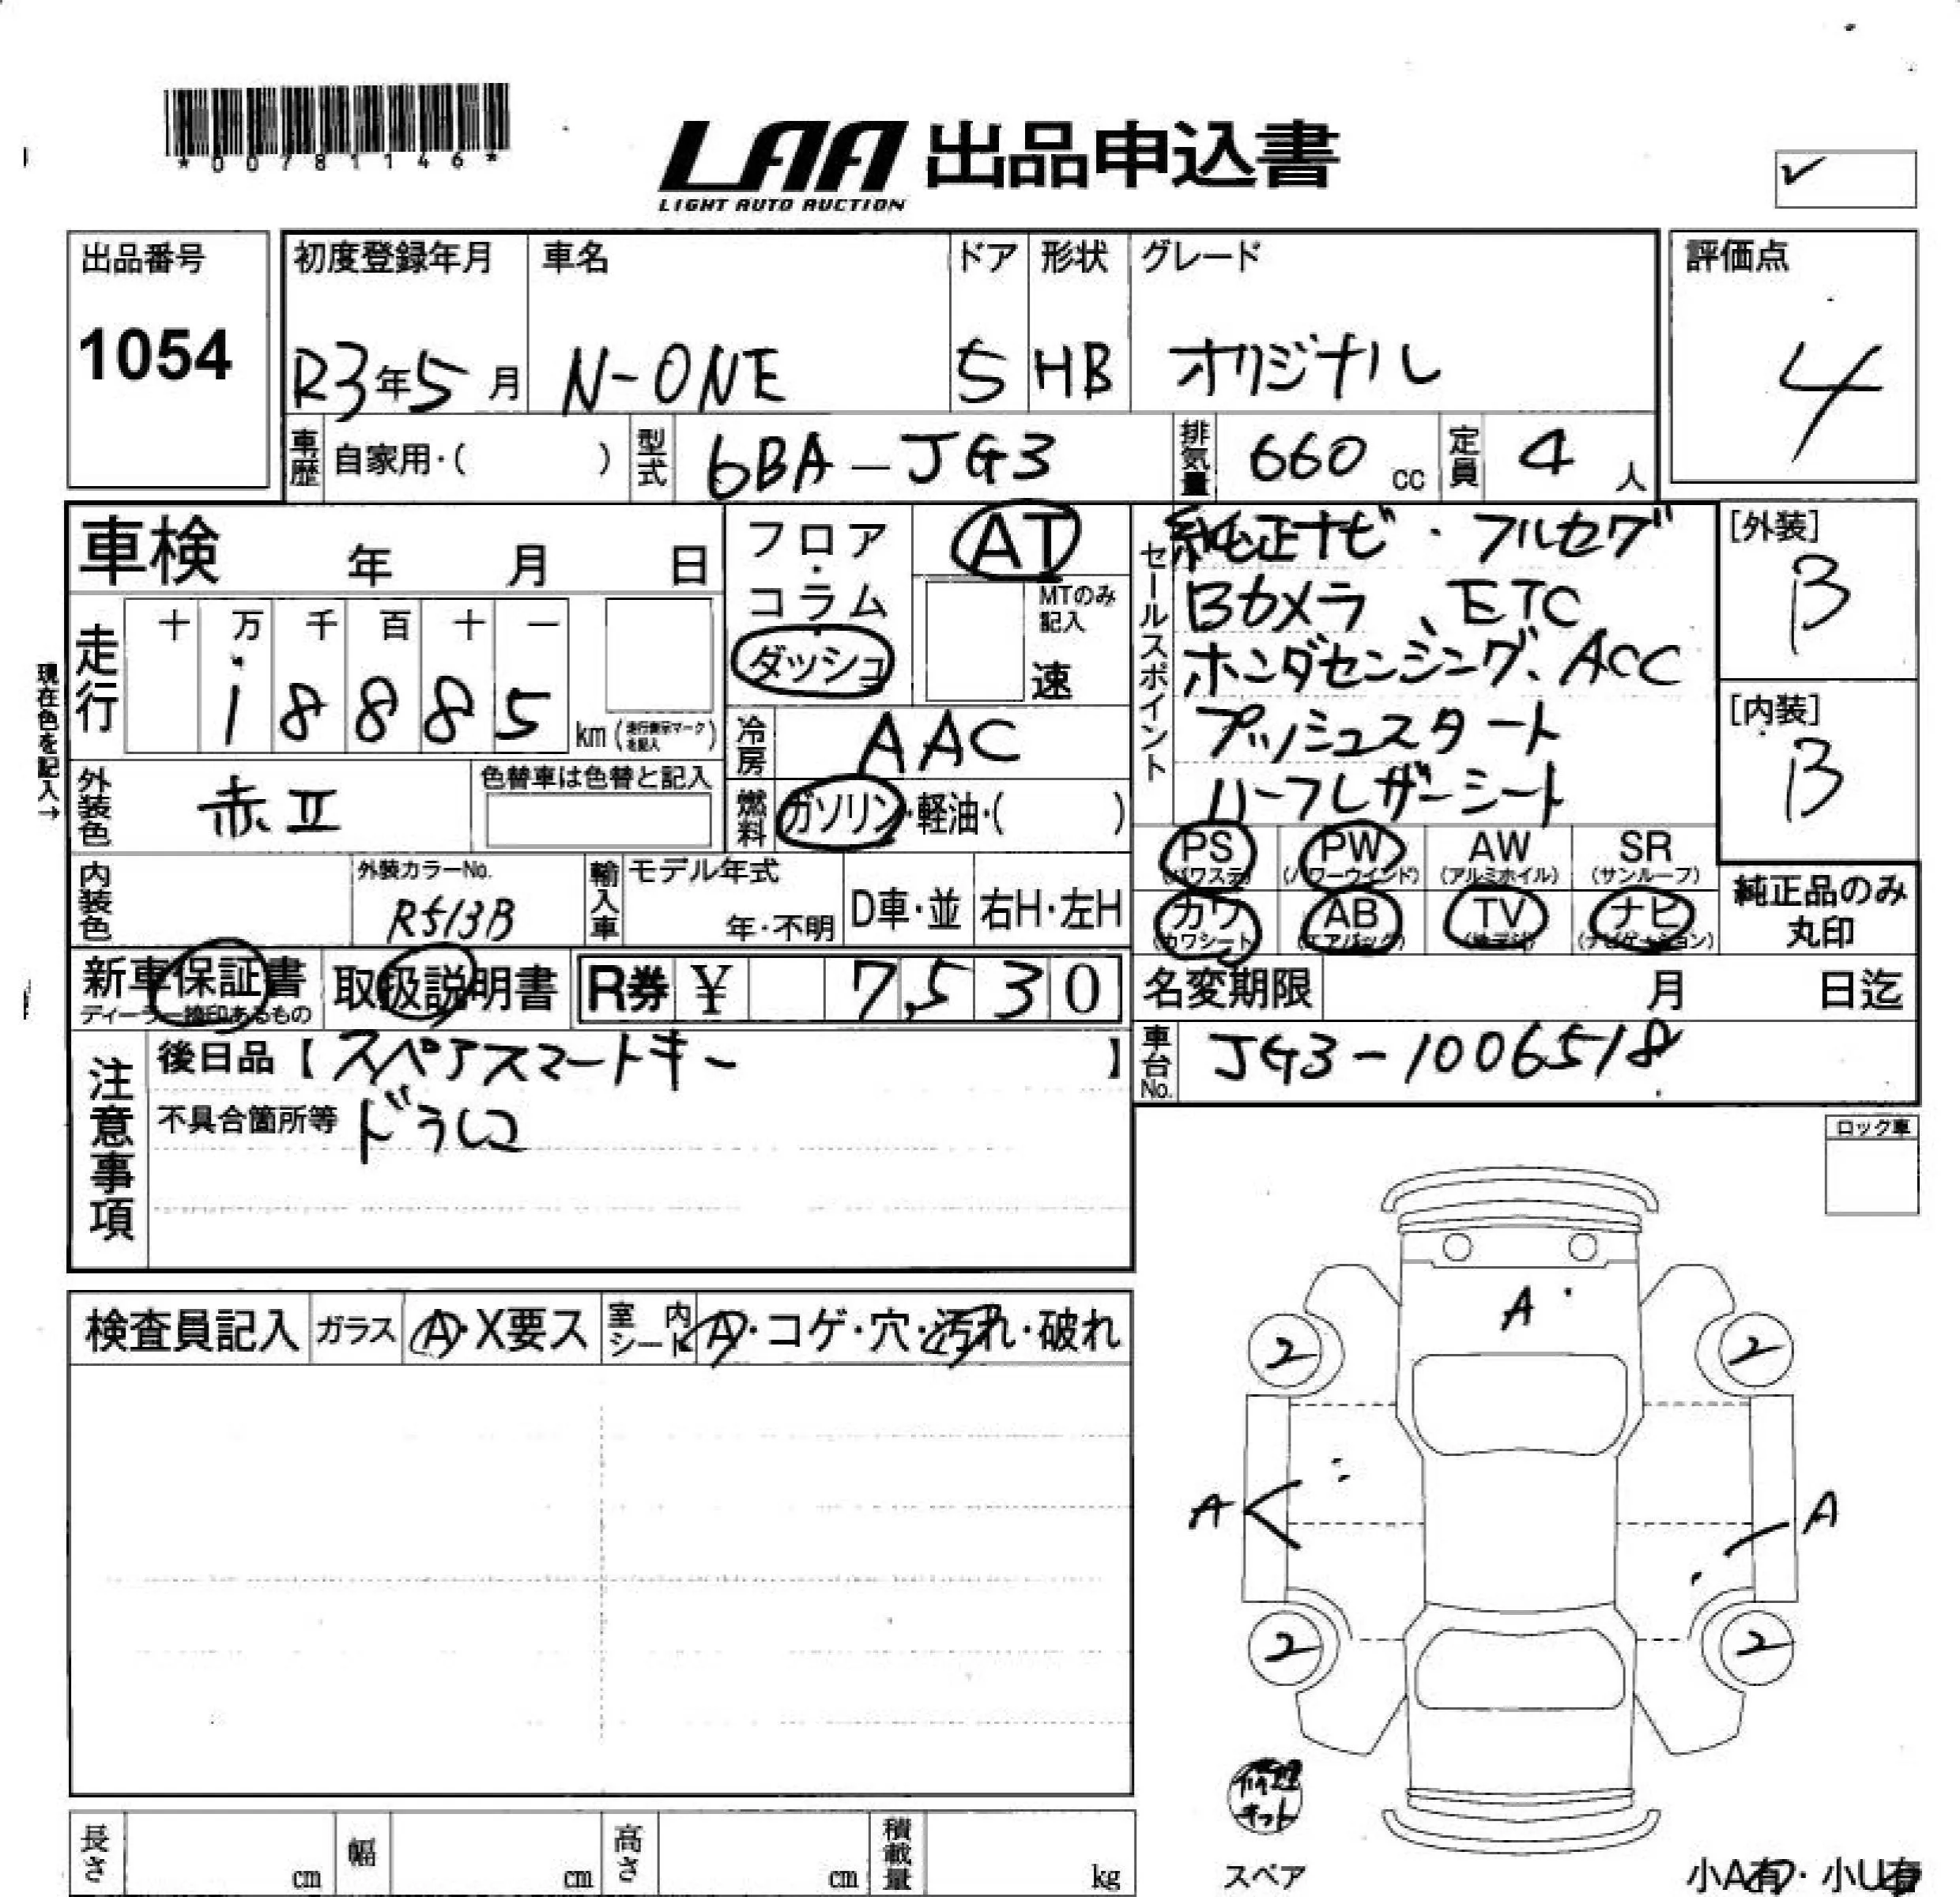 *00781146*
LAA 出品申込書
LIGHT AUTO AUCTION
出品番号
1054
初度登録年月 車名 ドア 形状 グレード
R3年5月 N-ONE 5 HB オリジナル
評価点
4
車歴 自家用・( ) 型式 6BA-JG3 排気量 660 cc 定員 4 人
車検 年 月 日
フロア・コラム・ダッシュ
AT
MTのみ記入
速
セールスポイント
純正ナビ・フルセグ
Bカメラ、ETC
ホンダセンシング、ACC
プッシュスタート
ハーフレザーシート
[外装]
B
[内装]
B
現在色を記入→
走行
十 万 千 百 十 一
1 8 8 8 5 km(走行表示マークを記入)
冷房 AAC
外装色 赤Ⅱ 色替車は色替と記入
燃料 ガソリン・軽油・( )
PS (パワステ) PW (パワーウインド) AW (アルミホイル) SR (サンルーフ)
カワ (カワシート) AB (エアバッグ) TV (地デジ) ナビ (ナビゲーション)
純正品のみ丸印
内装色 外装カラーNo. R513B
輸入車 モデル年式 年・不明 D車・並 右H・左H
新車保証書 ディーラー捺印あるもの 取扱説明書 R券 ¥ 7,530
名変期限 月 日迄
車台No. JG3-1006518
注意事項
後日品【スペアスマートキー】
不具合箇所等 ドラレコ
ロック車
検査員記入 ガラス A・X要ス 室内シート A・コゲ・穴・汚れ・破れ
A
2 2
A A
2 2
修理キット
スペア
長さ cm 幅 cm 高さ cm 積載量 kg
小A有・小U有